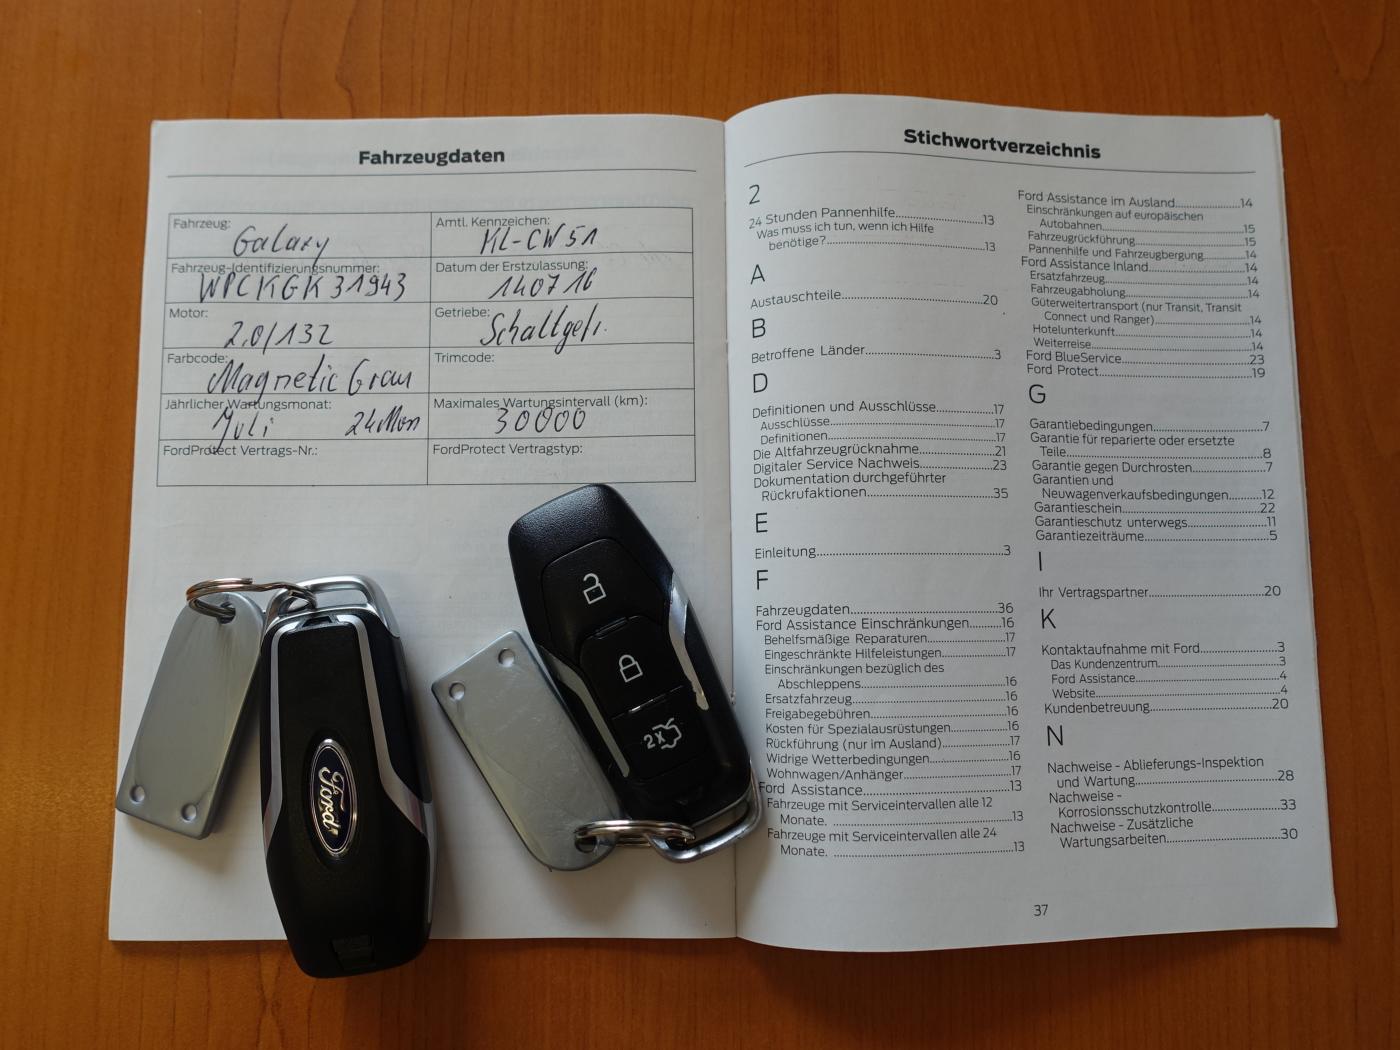 Fahrzeugdaten
Fahrzeug: Galaxy
Amtl. Kennzeichen: KL-CW 51
Fahrzeug-Identifizierungsnummer: WPCKGK31943
Datum der Erstzulassung: 140716
Motor: 2.0/132
Getriebe: Schaltgetr.
Farbcode: Magnetic Grau
Trimcode:
Jährlicher Wartungsmonat: Juli 24 Mon
Maximales Wartungsintervall (km): 30000
FordProtect Vertrags-Nr.:
FordProtect Vertragstyp:
Ford
2x
Stichwortverzeichnis
2
24 Stunden Pannenhilfe...13
Was muss ich tun, wenn ich Hilfe
benötige?...13
A
Austauschteile...20
B
Betroffene Länder...3
D
Definitionen und Ausschlüsse...17
Ausschlüsse...17
Definitionen...17
Die Altfahrzeugrücknahme...21
Digitaler Service Nachweis...23
Dokumentation durchgeführter
Rückrufaktionen...35
E
Einleitung...3
F
Fahrzeugdaten...36
Ford Assistance Einschränkungen...16
Behelfsmäßige Reparaturen...17
Eingeschränkte Hilfeleistungen...17
Einschränkungen bezüglich des
Abschleppens...16
Ersatzfahrzeug...16
Freigabegebühren...16
Kosten für Spezialausrüstungen...16
Rückführung (nur im Ausland)...17
Widrige Wetterbedingungen...16
Wohnwagen/Anhänger...17
Ford Assistance...13
Fahrzeuge mit Serviceintervallen alle 12
Monate. ...13
Fahrzeuge mit Serviceintervallen alle 24
Monate. ...13
Ford Assistance im Ausland...14
Einschränkungen auf europäischen
Autobahnen...15
Fahrzeugrückführung...15
Pannenhilfe und Fahrzeugbergung...14
Ford Assistance Inland...14
Ersatzfahrzeug...14
Fahrzeugabholung...14
Güterweitertransport (nur Transit, Transit
Connect und Ranger)...14
Hotelunterkunft...14
Weiterreise...14
Ford BlueService...23
Ford Protect...19
G
Garantiebedingungen...7
Garantie für reparierte oder ersetzte
Teile...8
Garantie gegen Durchrosten...7
Garantien und
Neuwagenverkaufsbedingungen...12
Garantieschein...22
Garantieschutz unterwegs...11
Garantiezeiträume...5
I
Ihr Vertragspartner...20
K
Kontaktaufnahme mit Ford...3
Das Kundenzentrum...3
Ford Assistance...4
Website...4
Kundenbetreuung...20
N
Nachweise - Ablieferungs-Inspektion
und Wartung...28
Nachweise -
Korrosionsschutzkontrolle...33
Nachweise - Zusätzliche
Wartungsarbeiten...30
37